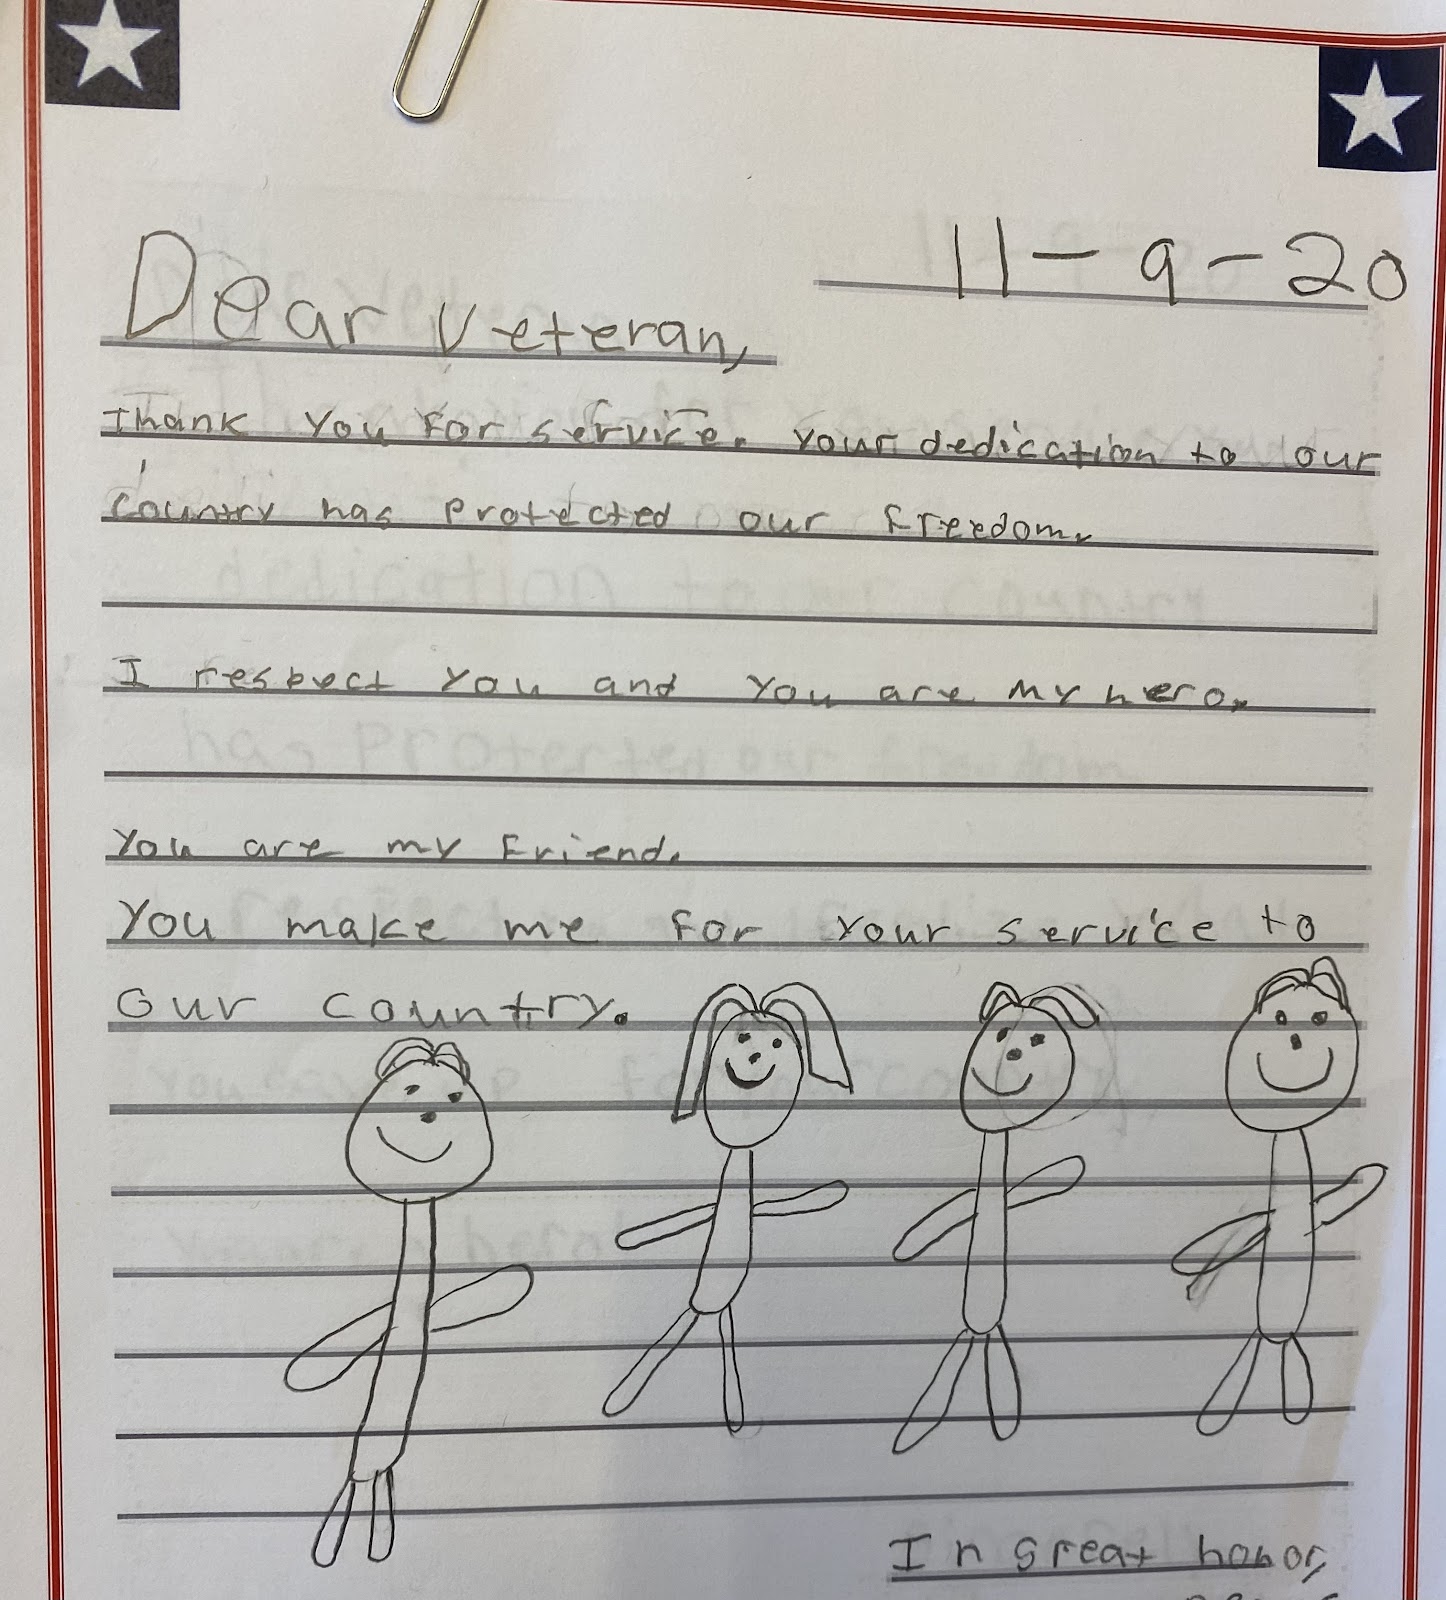 11-9-20
Dear Veteran,
Thank you for service. your dedication to our
country has protected our freedom.
I respect you and you are my hero.
You are my Friend.
You make me for your service to
our country.
In great honor,